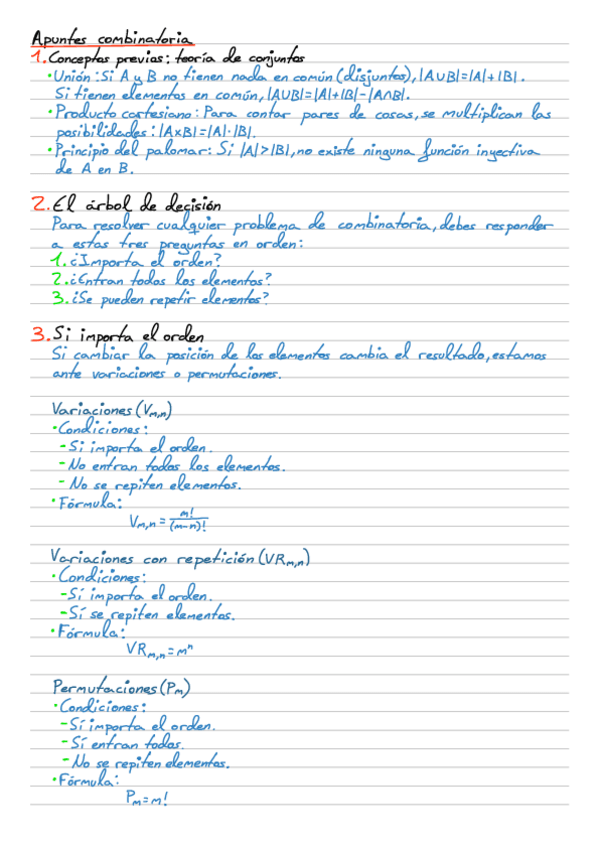 Apuntes combinatoria
1. Conceptos previos: teoría de conjuntos
• Unión: Si A y B no tienen nada en común (disjuntos), |A∪B|=|A|+|B|.
Si tienen elementos en común, |A∪B|=|A|+|B|-|A∩B|.
• Producto cartesiano: Para contar pares de cosas, se multiplican las
posibilidades: |A×B|=|A|·|B|.
• Principio del palomar: Si |A|>|B|, no existe ninguna función inyectiva
de A en B.
2. El árbol de decisión
Para resolver cualquier problema de combinatoria, debes responder
a estas tres preguntas en orden:
1. ¿Importa el orden?
2. ¿Entran todos los elementos?
3. ¿Se pueden repetir elementos?
3. Si importa el orden
Si cambiar la posición de los elementos cambia el resultado, estamos
ante variaciones o permutaciones.
Variaciones (Vm,n)
• Condiciones:
- Sí importa el orden.
- No entran todos los elementos.
- No se repiten elementos.
• Fórmula:
Vm,n = m!/(m-n)!
Variaciones con repetición (VRm,n)
• Condiciones:
- Sí importa el orden.
- Sí se repiten elementos.
• Fórmula:
VRm,n = mⁿ
Permutaciones (Pm)
• Condiciones:
- Sí importa el orden.
- Sí entran todos.
- No se repiten elementos.
• Fórmula:
Pm = m!